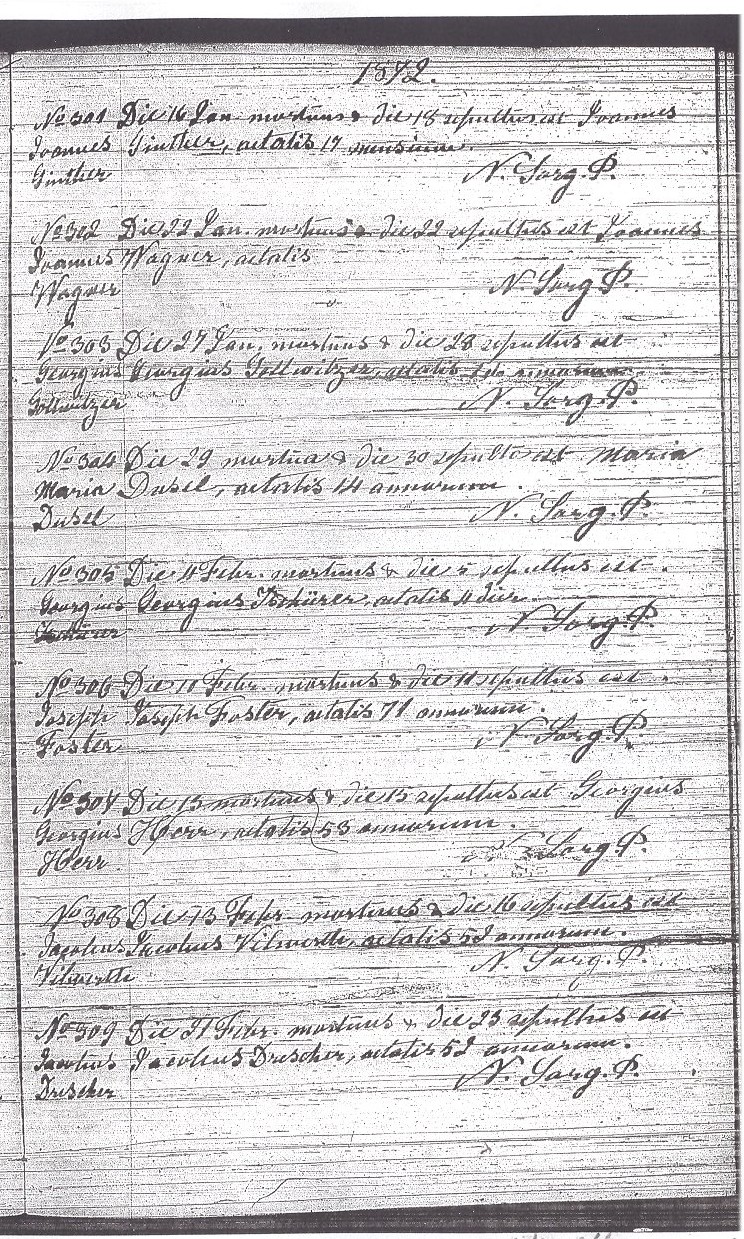 1872.
No 301 Die 16 Jan. mortuus & die 18 sepultus est Joannes
Joannes Ginther, aetatis 17 mensium.
Ginther N. Sorg. P.
No 302 Die 22 Jan. mortuus & die 22 sepultus est Joannes
Joannes Wagner, aetatis
Wagner N. Sorg P.
No 303 Die 27 Jan. mortuus & die 28 sepultus est
Georgius Georgius Gollwitzer, aetatis annorum
Gollwitzer N. Sorg. P.
No 304 Die 29 mortua & die 30 sepulta est Maria
Maria Dusel, aetatis 14 annorum.
Dusel N. Sorg. P.
No 305 Die 4 Febr. mortuus & die 5 sepultus est
Georgius Georgius Tschürer, aetatis 4 dier.
Tschürer N. Sorg. P.
No 306 Die 10 Febr. mortuus & die 11 sepultus est
Joseph Joseph Foster, aetatis 71 annorum.
Foster N. Sorg P.
No 307 Die 13 mortuus & die 15 sepultus est Georgius
Georgius Herr, aetatis 53 annorum.
Herr Sorg. P.
No 308 Die 13 Febr. mortuus & die 16 sepultus est
Jacobus Jacobus Vilwerth, aetatis 52 annorum.
Vilwerth N. Sorg. P.
No 309 Die 21 Febr. mortuus & die 23 sepultus est
Jacobus Jacobus Drescher, aetatis 52 annorum.
Drescher N. Sorg. P.